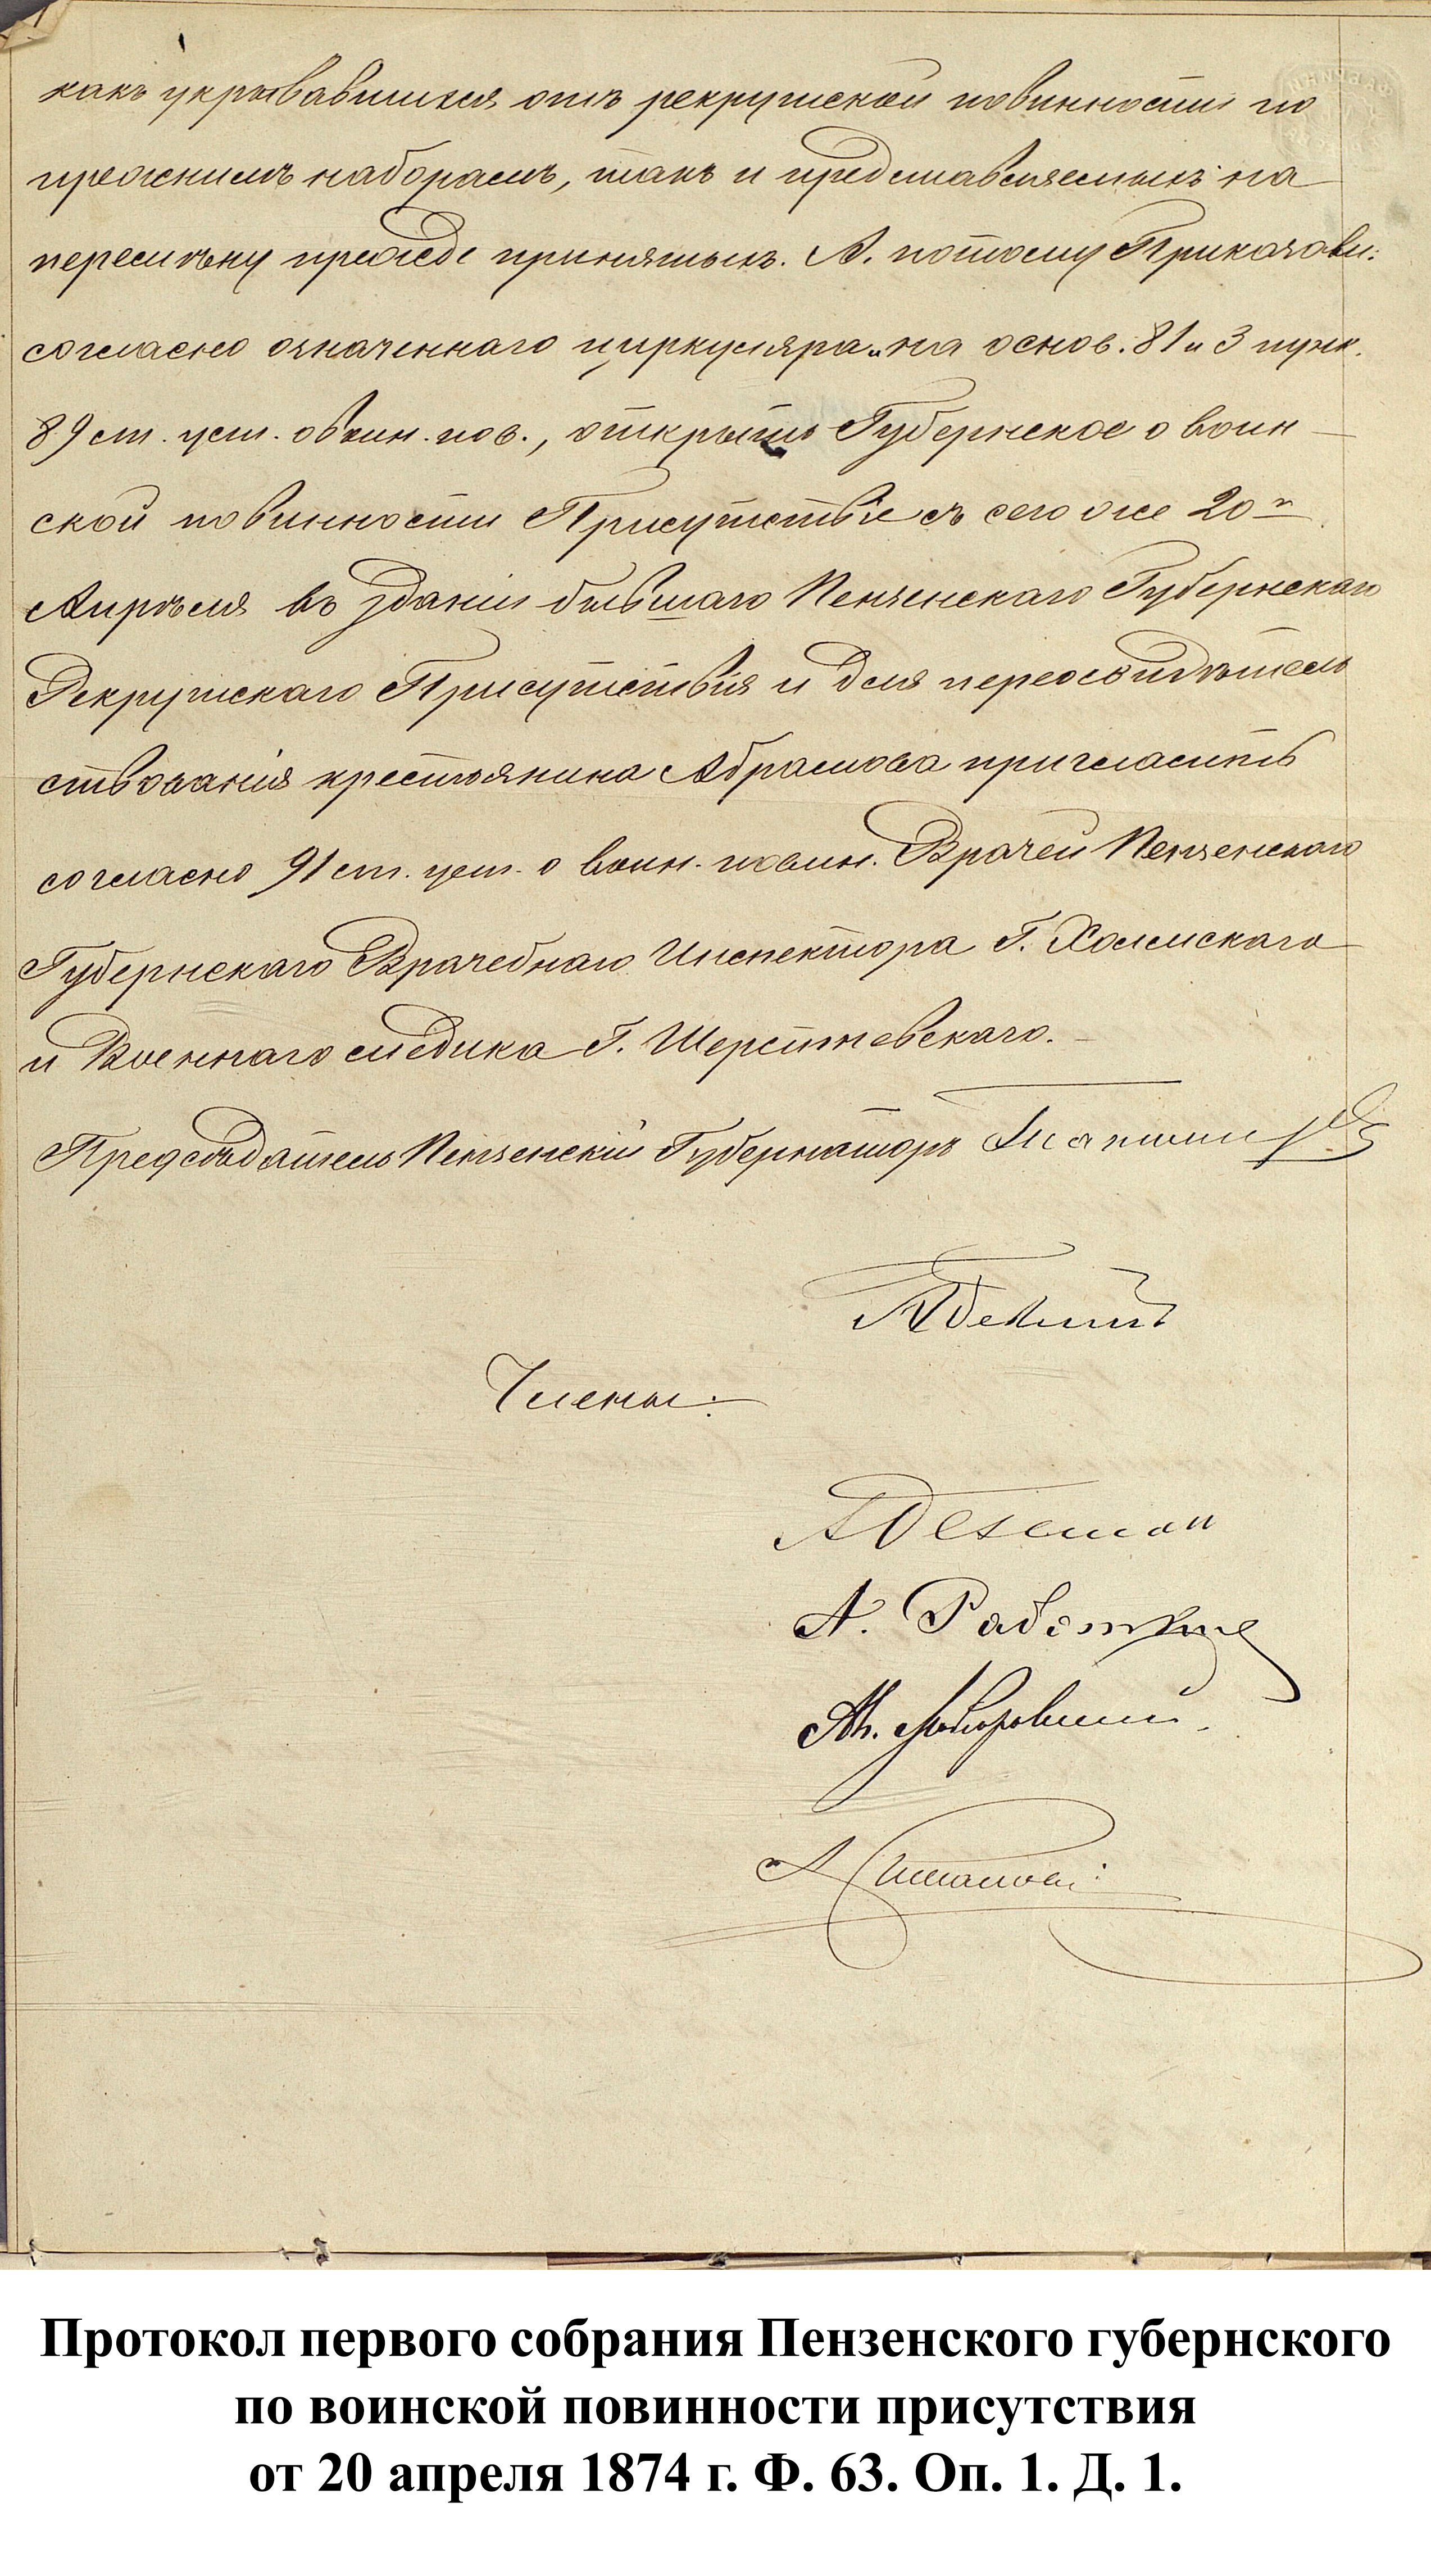 какъ укрывавшихся отъ рекрутской повинности по
прежнимъ наборамъ, такъ и представляемыхъ на
пересмѣну прежде принятыхъ. А. потому Приказали:
согласно означеннаго циркуляра и на основ. 81 и 3 пунк.
89 ст. уст. о воин. пов., открыть Губернское о воин
ской повинности Присутствіе съ сего же 20го
Апрѣля въ зданіи бывшаго Пензенскаго Губернскаго
Рекрутскаго Присутствія и для переосвидѣтель
ствованія крестьянина Абрамова пригласить
согласно 91 ст. уст. о воин. повин. Врачей Пензенскаго
Губернскаго Врачебнаго Инспектора Г. Холмскаго
и Военнаго медика Г. Шерстневскаго.
Предсѣдатель Пензенскій Губернаторъ
Члены:
А.
Протокол первого собрания Пензенского губернского
по воинской повинности присутствия
от 20 апреля 1874 г. Ф. 63. Оп. 1. Д. 1.